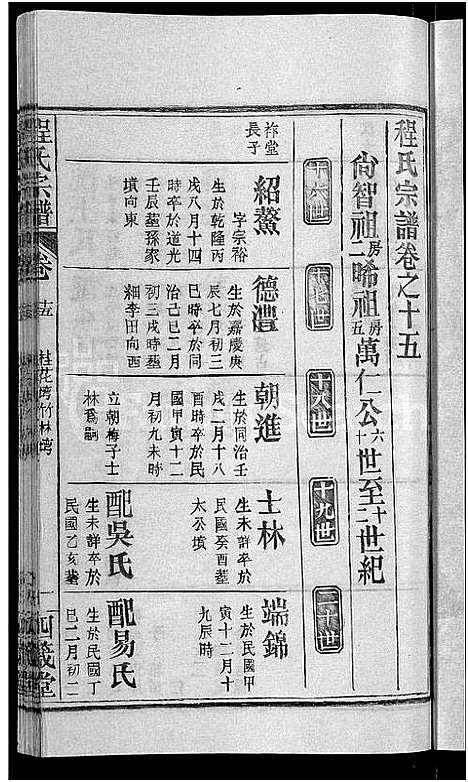 程氏宗譜卷之十五
尙智祖二房晞祖五房萬仁公十六世至二十世紀
十六世
十七世
十八世
十九世
二十世
祚堂長子
紹鰲
字宗裕
生於乾隆丙
戌八月十四
時卒於道光
壬辰塟孫家
墳向東
德灃
生於嘉慶庚
辰七月初三
巳時卒於同
治己巳二月
初三戌時塟
細李田向西
朝進
生於同治壬
戌二月十八
酉時卒於民
國甲寅十二
月初九未時
立朝梅子士
林爲嗣
士林
生未詳卒於
民國癸酉塟
太公墳
配吳氏
生未詳卒於
民國乙亥塟
端錦
生於民國甲
寅十二月十
九辰時
配易氏
生於民國丁
巳二月初二
程氏宗譜
卷
十五
桂花塆竹林塆
四箴堂